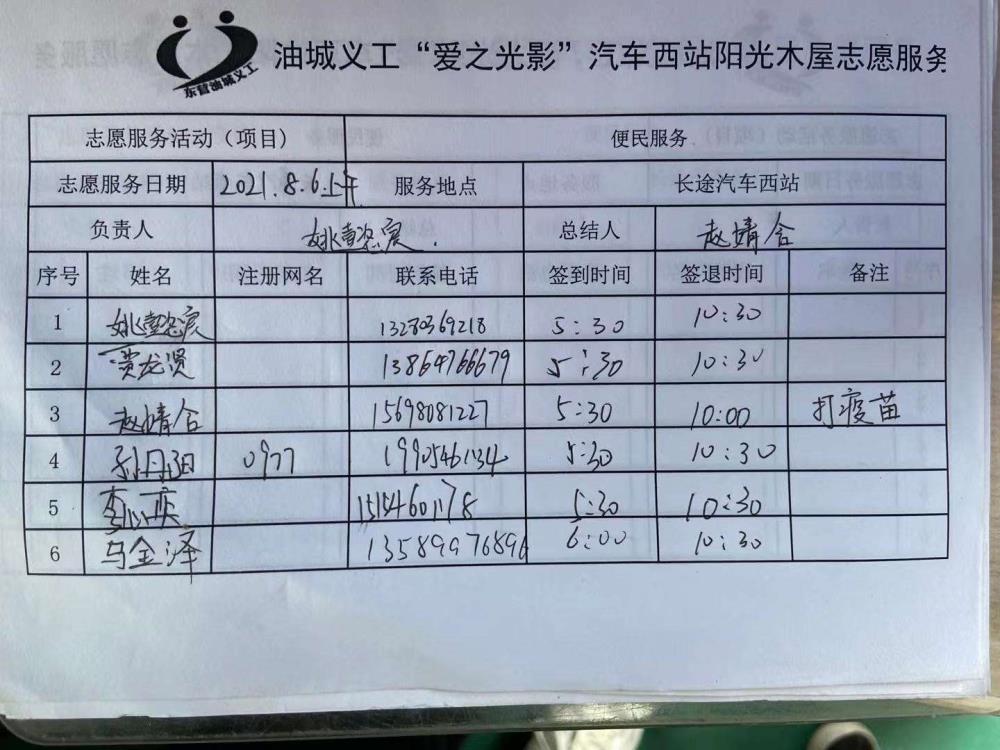 东营油城义工
油城义工“爱之光影”汽车西站阳光木屋志愿服务
志愿服务活动（项目） 便民服务
志愿服务日期 2021.8.6.上午 服务地点 长途汽车西站
负责人 姚懿宸 总结人 赵婧含
序号 姓名 注册网名 联系电话 签到时间 签退时间 备注
1 姚懿宸 13280369218 5:30 10:30
2 贾龙贤 13864766679 5:30 10:30
3 赵婧含 15698081227 5:30 10:00 打疫苗
4 孙丹阳 0977 5:30 10:30
5 李心 5:30 10:30
6 马金泽 6:00 10:30